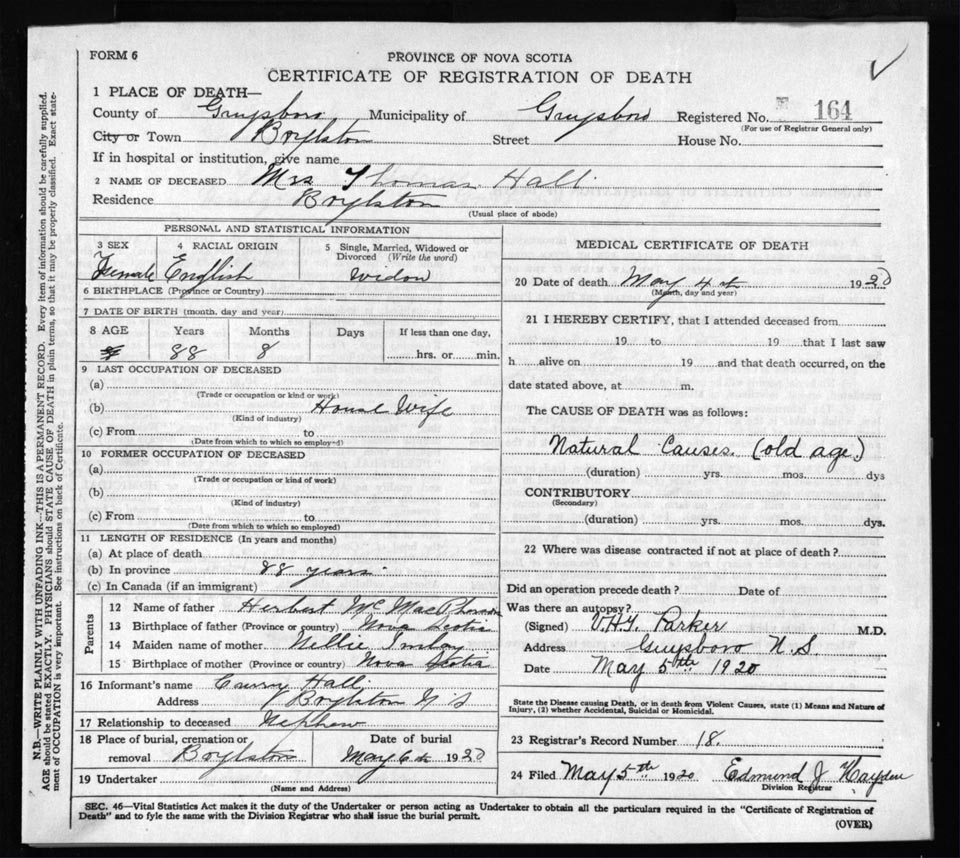 FORM 6
PROVINCE OF NOVA SCOTIA
CERTIFICATE OF REGISTRATION OF DEATH
1 PLACE OF DEATH—
County of Guysboro Municipality of Guysboro Registered No. 164
(For use of Registrar General only)
City or Town Boylston Street House No.
If in hospital or institution, give name
2 NAME OF DECEASED Mrs Thomas Hall
Residence Boylston
(Usual place of abode)
PERSONAL AND STATISTICAL INFORMATION
3 SEX 4 RACIAL ORIGIN 5 Single, Married, Widowed or Divorced (Write the word)
Female English widow
6 BIRTHPLACE (Province or Country)
7 DATE OF BIRTH (month, day and year)
8 AGE Years Months Days If less than one day,
88 8 hrs. or min.
9 LAST OCCUPATION OF DECEASED
(a)
(Trade or occupation or kind or work)
(b) House Wife
(Kind of industry)
(c) From to
(Date from which to which so employed)
10 FORMER OCCUPATION OF DECEASED
(a)
(Trade or occupation or kind of work)
(b)
(Kind of industry)
(c) From to
(Date from which to which so employed)
11 LENGTH OF RESIDENCE (In years and months)
(a) At place of death
(b) In province 88 years
(c) In Canada (if an immigrant)
Parents
12 Name of father Herbert Mc
13 Birthplace of father (Province or country) Nova Scotia
14 Maiden name of mother Nellie
15 Birthplace of mother (Province or country) Nova Scotia
16 Informant's name Hall
Address Boylston N S
17 Relationship to deceased Nephew
18 Place of burial, cremation or removal Boylston Date of burial May 6th 1920
19 Undertaker
(Name and Address)
MEDICAL CERTIFICATE OF DEATH
20 Date of death May 4th 1920
(Month, day and year)
21 I HEREBY CERTIFY, that I attended deceased from
19 to 19 that I last saw
h alive on 19 and that death occurred, on the
date stated above, at m.
The CAUSE OF DEATH was as follows:
Natural Causes. (old age.)
(duration) yrs. mos. dys
CONTRIBUTORY
(Secondary)
(duration) yrs. mos. dys.
22 Where was disease contracted if not at place of death?
Did an operation precede death? Date of
Was there an autopsy?
(Signed) Parker M.D.
Address Guysboro N.S.
Date May 5th 1920
State the Disease causing Death, or in death from Violent Causes, state (1) Means and Nature of
Injury, (2) whether Accidental, Suicidal or Homicidal.
23 Registrar's Record Number 18.
24 Filed May 5th 1920 Edmund J Hayden
Division Registrar
SEC. 46—Vital Statistics Act makes it the duty of the Undertaker or person acting as Undertaker to obtain all the particulars required in the "Certificate of Registration of
Death" and to fyle the same with the Division Registrar who shall issue the burial permit.
(OVER)
N.B.—WRITE PLAINLY WITH UNFADING INK—THIS IS A PERMANENT RECORD. Every item of information should be carefully supplied.
AGE should be stated EXACTLY. PHYSICIANS should STATE CAUSE OF DEATH in plain terms, so that it may be properly classified. Exact state-
ment of OCCUPATION is very important. See instructions on back of Certificate.